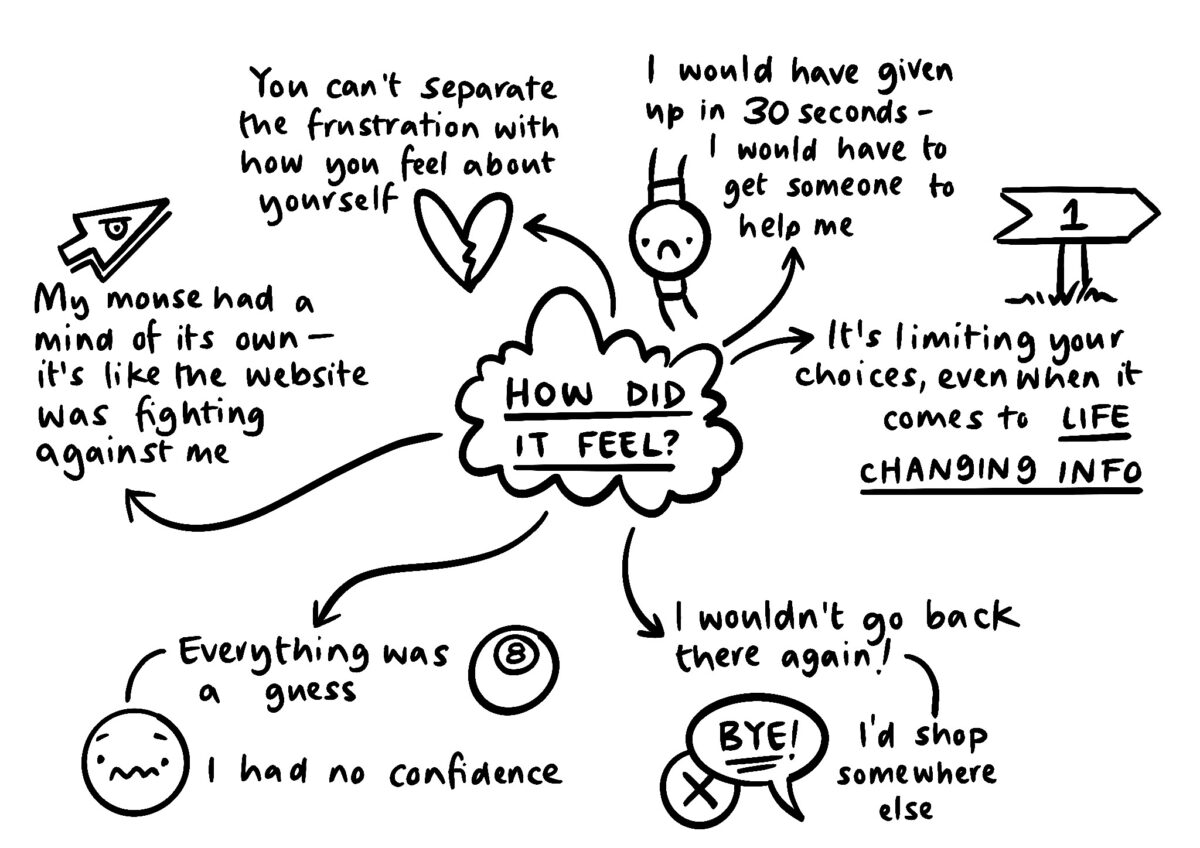 You can't separate
the frustration with
how you feel about
yourself
I would have given
up in 30 seconds –
I would have to
get someone to
help me
1
My mouse had a
mind of its own –
it's like the website
was fighting
against me
It's limiting your
choices, even when it
comes to LIFE
CHANGING INFO
HOW DID
IT FEEL?
Everything was
a guess
8
I had no confidence
I wouldn't go back
there again!
BYE!
X
I'd shop
somewhere
else